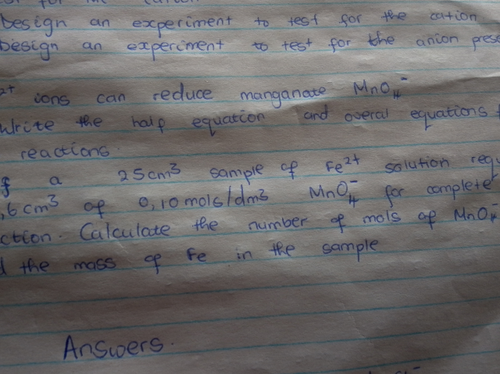 for the
Design an experiment to test for the cation
Design an experiment to test for the anion pres
2+ ions can reduce manganate MnO4-
Write the half equation and overal equations f
reactions.
f a 25cm3 sample of Fe2+ solution req
,6cm3 of 0,10mols/dm3 MnO4- for complete
ction. Calculate the number of mols of MnO4-
d the mass of Fe in the sample
Answers.